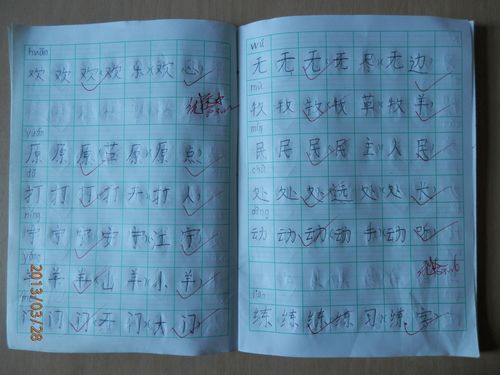 huān
欢 欢 欢 欢 乐 欢 心
yuán
原 原 原 草 原 原
dǎ
打 打 打 打 开 打 人
níng
宁 宁 宁 安 宁 江 宁
yáng
羊 羊 羊 山 羊 小 羊
mén
门 门 门 开 门 大 门
2013/03/28
wú
无 无 无 无 无 边
mù
牧 牧 牧 牧 草 牧 羊
mín
民 民 民 民 主 人 民
chù
处 处 处 远 处 处 长
dòng
动 动 动 动 手 动 听
liàn
练 练 练 练 习 练 字